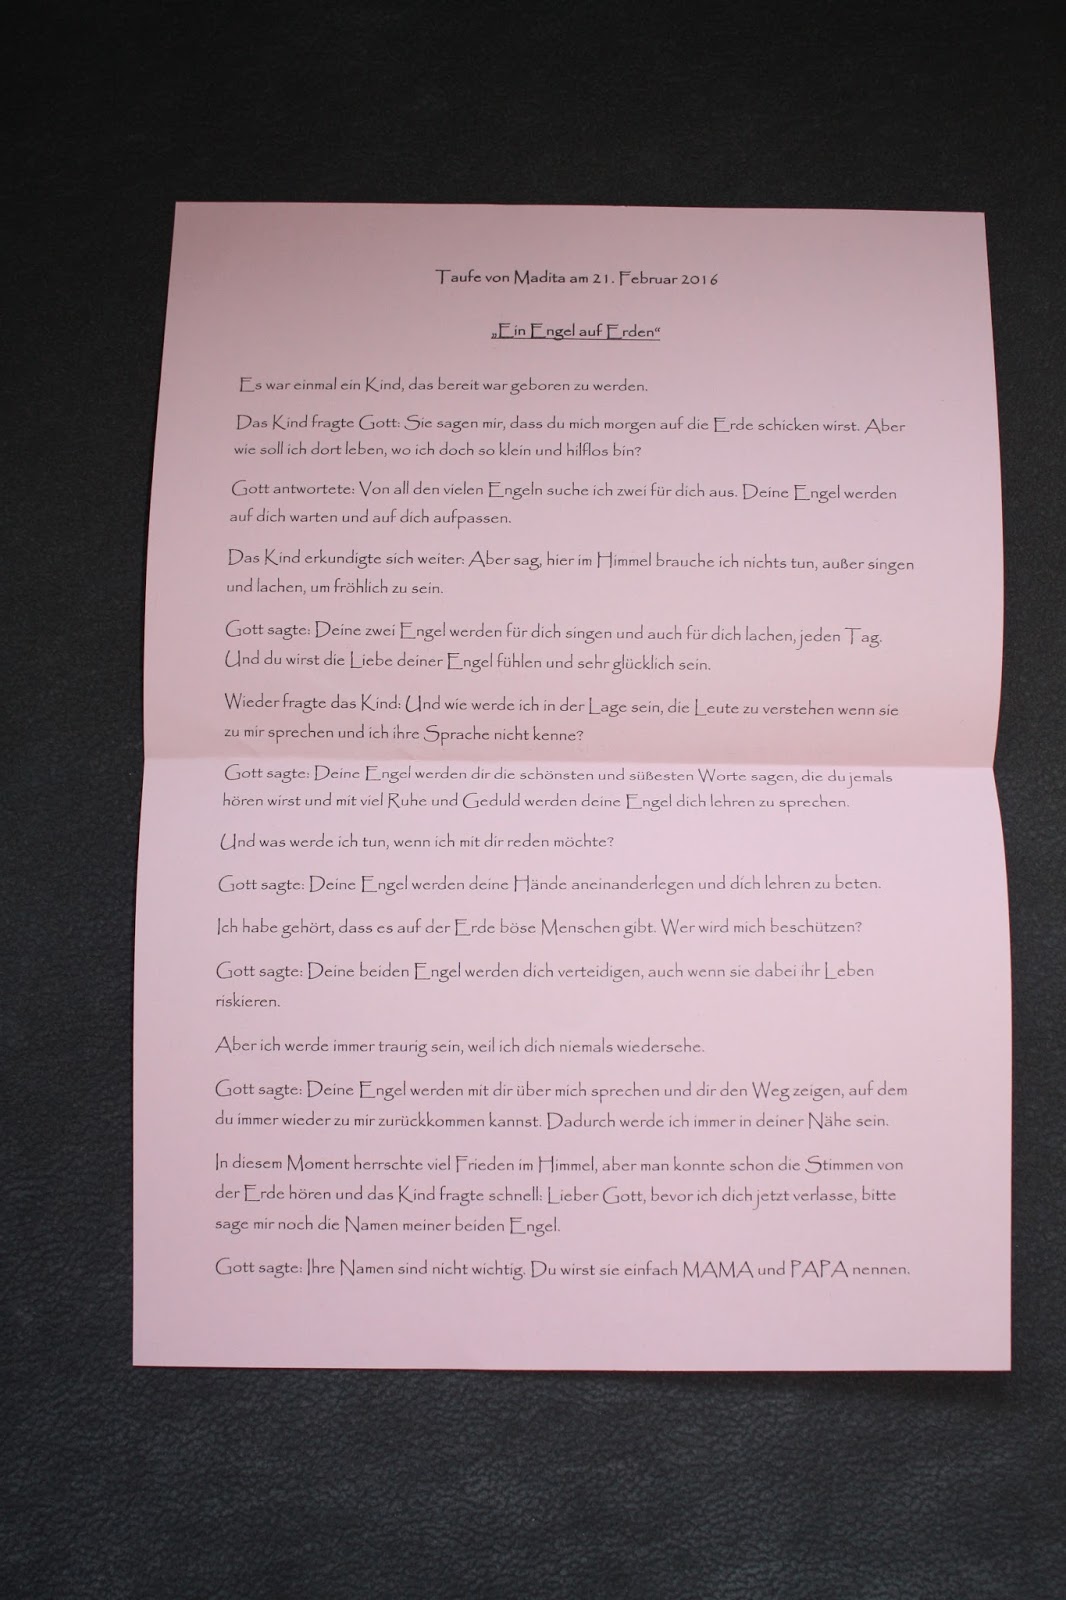 Taufe von Madita am 21. Februar 2016
„Ein Engel auf Erden“
Es war einmal ein Kind, das bereit war geboren zu werden.
Das Kind fragte Gott: Sie sagen mir, dass du mich morgen auf die Erde schicken wirst. Aber
wie soll ich dort leben, wo ich doch so klein und hilflos bin?
Gott antwortete: Von all den vielen Engeln suche ich zwei für dich aus. Deine Engel werden
auf dich warten und auf dich aufpassen.
Das Kind erkundigte sich weiter: Aber sag, hier im Himmel brauche ich nichts tun, außer singen
und lachen, um fröhlich zu sein.
Gott sagte: Deine zwei Engel werden für dich singen und auch für dich lachen, jeden Tag.
Und du wirst die Liebe deiner Engel fühlen und sehr glücklich sein.
Wieder fragte das Kind: Und wie werde ich in der Lage sein, die Leute zu verstehen wenn sie
zu mir sprechen und ich ihre Sprache nicht kenne?
Gott sagte: Deine Engel werden dir die schönsten und süßesten Worte sagen, die du jemals
hören wirst und mit viel Ruhe und Geduld werden deine Engel dich lehren zu sprechen.
Und was werde ich tun, wenn ich mit dir reden möchte?
Gott sagte: Deine Engel werden deine Hände aneinanderlegen und dich lehren zu beten.
Ich habe gehört, dass es auf der Erde böse Menschen gibt. Wer wird mich beschützen?
Gott sagte: Deine beiden Engel werden dich verteidigen, auch wenn sie dabei ihr Leben
riskieren.
Aber ich werde immer traurig sein, weil ich dich niemals wiedersehe.
Gott sagte: Deine Engel werden mit dir über mich sprechen und dir den Weg zeigen, auf dem
du immer wieder zu mir zurückkommen kannst. Dadurch werde ich immer in deiner Nähe sein.
In diesem Moment herrschte viel Frieden im Himmel, aber man konnte schon die Stimmen von
der Erde hören und das Kind fragte schnell: Lieber Gott, bevor ich dich jetzt verlasse, bitte
sage mir noch die Namen meiner beiden Engel.
Gott sagte: Ihre Namen sind nicht wichtig. Du wirst sie einfach MAMA und PAPA nennen.